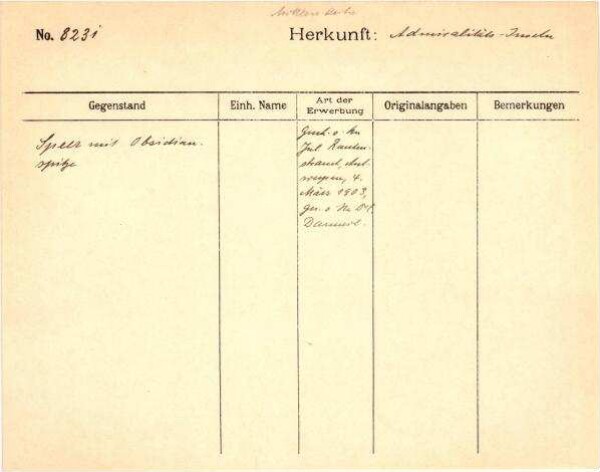 No. 823i
Herkunft: Admiralitäts-Inseln
Gegenstand
Einh. Name
Art der
Erwerbung
Originalangaben
Bemerkungen
Speer mit Obsidian-
spitze
Gesch. v. Hn
Jul. Rauten-
strauch, Ant-
werpen, 4.
März 1903,
Ges. v. Hn